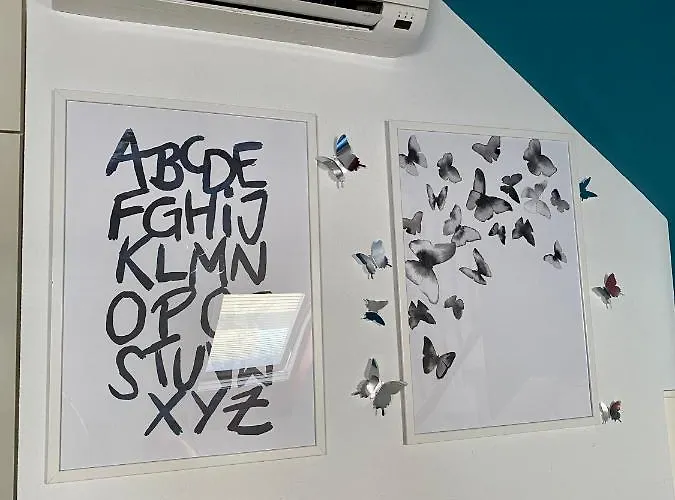 ABCDE
FGHiJ
KLMN
OP
STUVW
XYZ